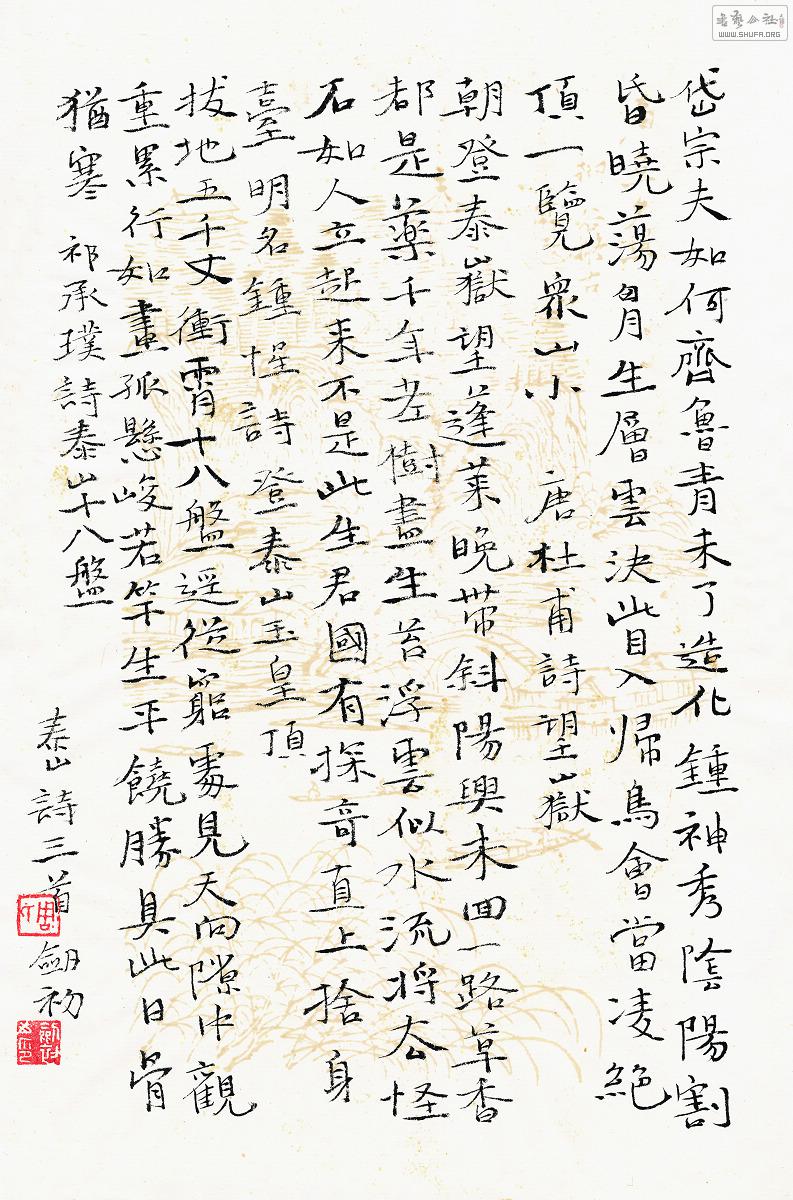 岱宗夫如何齊魯青未了造化鍾神秀陰陽割
昏曉蕩胷生層雲決眥入歸鳥會當凌絕
頂一覽衆山小 唐杜甫詩望嶽
朝登泰嶽望蓬萊晚帶斜陽興未回一路草香
都是藥千年老樹盡生苔浮雲似水流將去怪
石如人立起来不是此生君國有探奇直上捨身
臺 明名鍾惺詩登泰山玉皇頂
拔地五千丈衝霄十八盤逕從窮處見天向隙中觀
重累行如畫孤懸峻若竿生平饒勝具此日骨
猶寒 祁承璞詩泰山十八盤
泰山詩三首 劒初
WWW.SHUFA.ORG